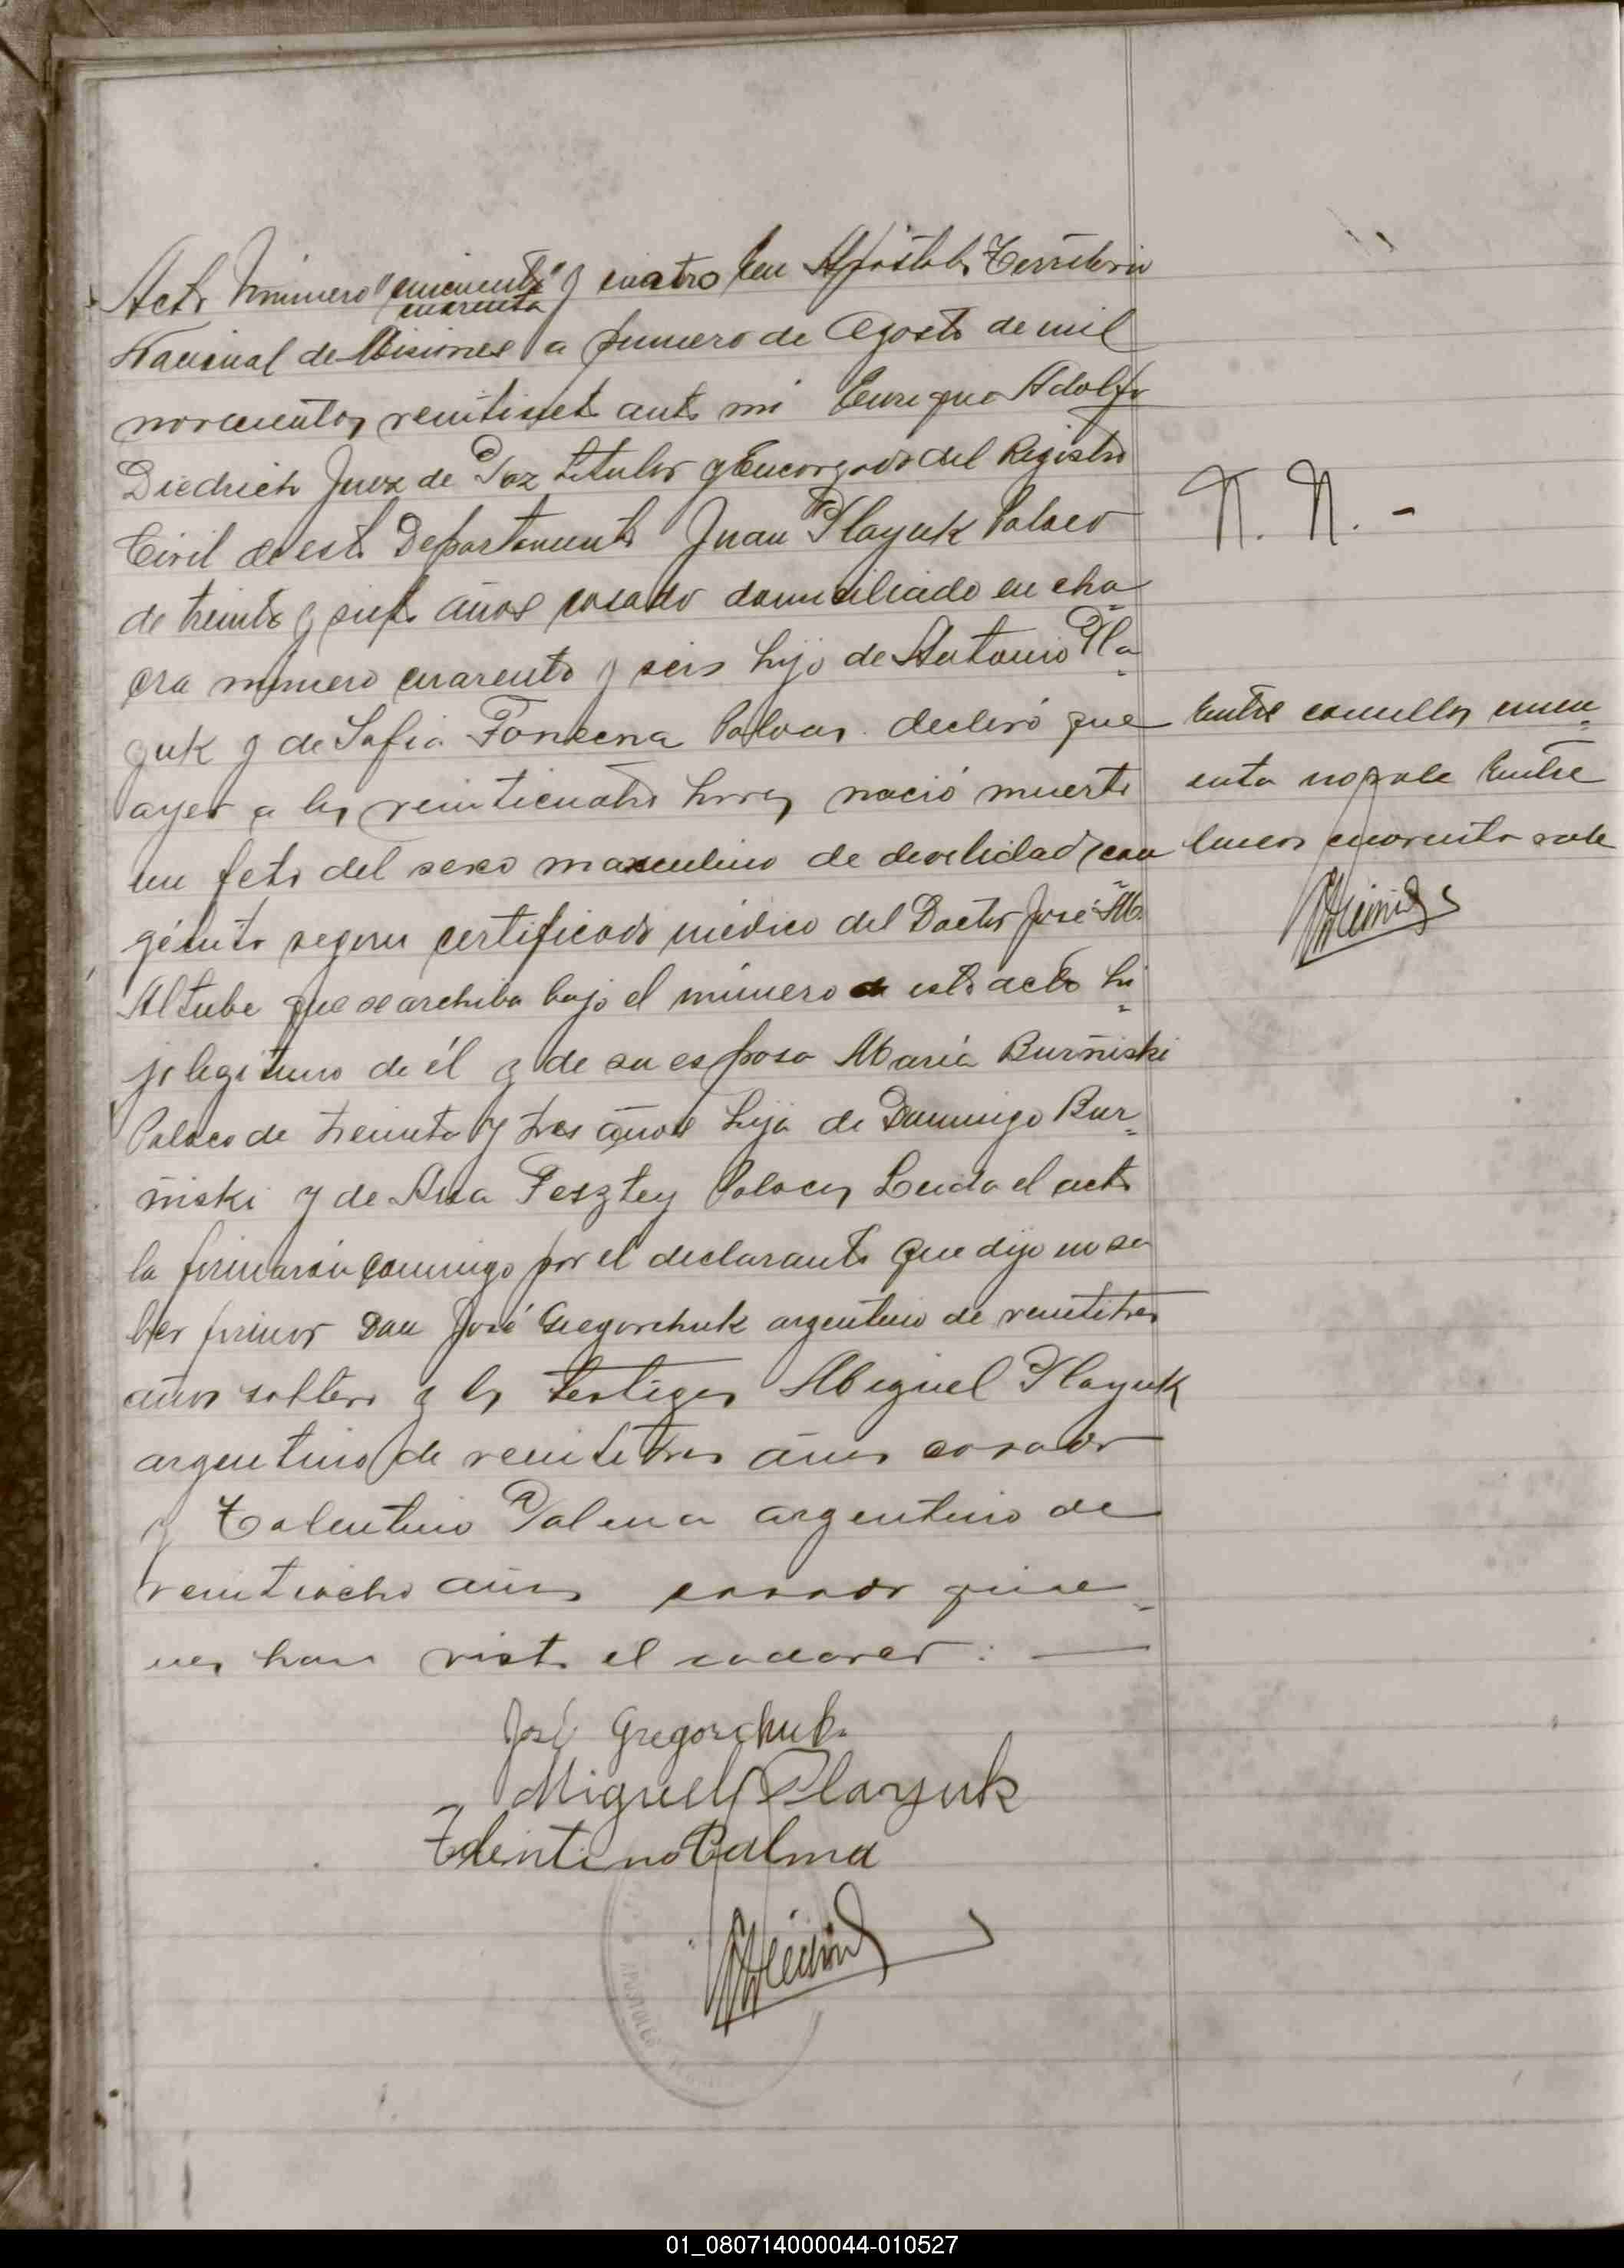 Acta Número "cincuenta" y cuatro En Apóstoles Territorio
cuarenta
Nacional de Misiones a primero de Agosto de mil
novecientos veintisiete ante mi Enrique Adolfo
Diedrich Juez de Paz titular y Encargado del Registro
Civil de este Departamento Juan Playuk Polaco
de treinta y siete años casado domiciliado en cha
cra número cuarenta y seis hijo de Antonio Pla-
yuk y de Sofia Polacos declaró que
ayer a las veinticuatro horas nació muerto
un feto del sexo masculino de devilidad con
génito segun certificado médico del Doctor José M.
Altube que se archiba bajo el número de esta acta hi-
jo legitimo de él y de su esposa María Burñiski
Polaca de treinta y tres años hija de Domingo Bur-
ñiski y de Ana Fesztey Polacos Leida el acta
la firmaron conmigo por el declarante que dijo no sa
ber firmar Don José Gregorchuk argentino de veintitres
años soltero y los testigos Miguel Playuk
argentino de veintitres años casado
y Tolentino Palma argentino de
veintiocho años casado quie-
nes han visto el cadaver : —
José Gregorchuk.
Miguel Playuk
Tolentino Palma
APOSTOLES
N. N. -
Entre comillas cincu-
enta no vale Entre
lineas cuarenta vale
01_080714000044-010527